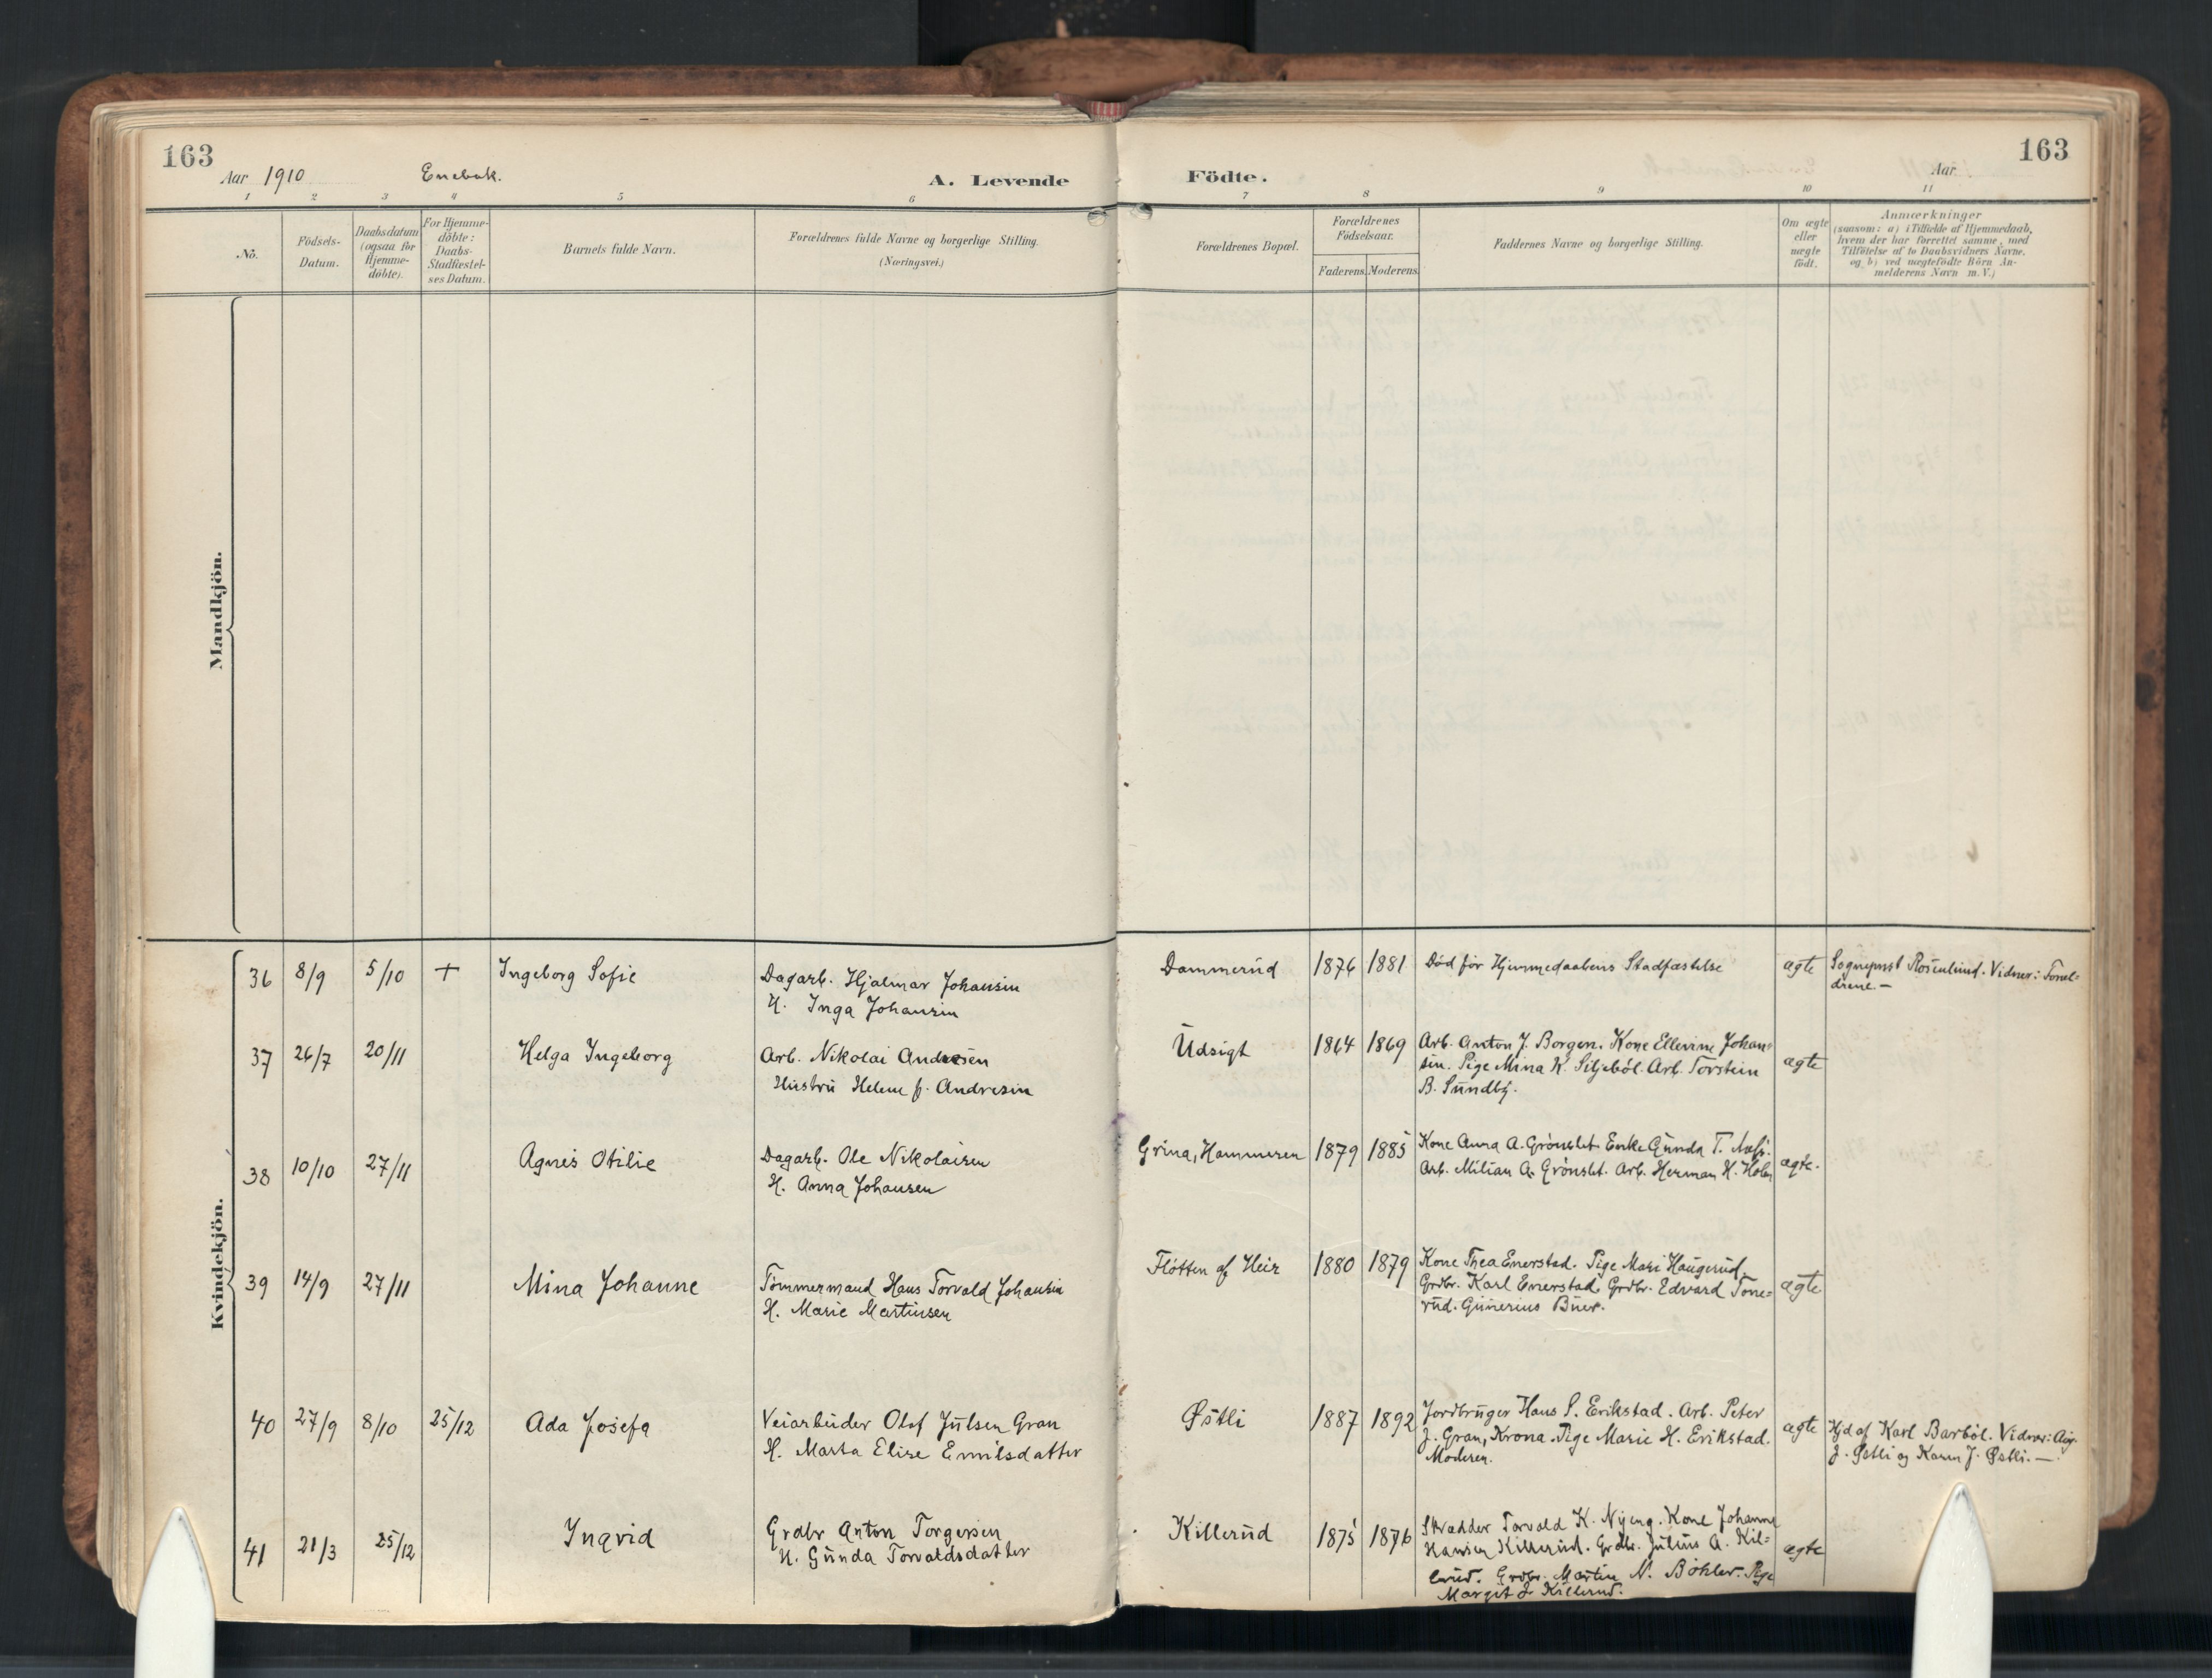 163
Aar 1910
Enebak.
A. Levende
Födte.
Aar
163
1 2 3 4 5 6 7 8 9 10 11
No.
Födsels-
Datum.
Daabsdatum
(ogsaa for
Hjemme-
döbte).
For Hjemme-
döbte:
Daabs-
Stadfæstel-
ses Datum.
Barnets fulde Navn.
Forældrenes fulde Navne og borgerlige Stilling.
(Næringsvei.)
Forældrenes Bopæl.
Forældrenes
Födselsaar.
Faderens. Moderens.
Faddernes Navne og borgerlige Stilling.
Om ægte
eller
uægte
födt.
Anmærkninger
(saasom: a) i Tilfælde af Hjemmedaab,
hvem der har forrettet samme, med
Tilföielse af to Daabsvidners Navne.
og b) ved uægtefödte Börn An-
melderens Navn m. V.)
Mandkjön.
Kvindekjön.
36 8/9 5/10 + Ingeborg Sofie Dagarb. Hjalmar Johansen Dammerud 1876 1881 Död för Hjemmedaabens Stadfæstelse ægte Sogneprest Rosenlund. Vidner: Foræl-
H. Inga Johansen drene. —
37 26/7 20/11 Helga Ingeborg Arb. Nikolai Andresen Udsigt 1864 1869 Arb. Anton J. Borgen. Kone Ellevine Johan-
sen. Pige Mina K. Siljeböl. Arb. Torstein ægte
Hustru Helene f. Andresen B. Sundby.
38 10/10 27/11 Agnes Otilie Dagarb. Ole Nikolaisen Grina, Hammeren 1879 1885 Kone Anna A. Grönslet. Enke Gunda T.
H. Anna Johansen Arb. Milian A. Grönslet. Arb. Herman H. ægte.
39 14/9 27/11 Mina Johanne Tömmermand Hans Torvald Johansen Flötten af Heir 1880 1879 Kone Thea Enerstad. Pige Mari Haugerud.
H. Marie Martinsen Grdbr. Karl Enerstad. Grdbr. Edvard Tone- ægte
rud. Gunerius Buer.
40 27/9 8/10 25/12 Ada Josefa Veiarbeider Olaf Julsen Gran Östli 1887 1892 Jordbruger Hans S. Erikstad. Arb. Peter ægte Hjd af Karl Barböl. Vidner: Aug.
H. Marta Elise Emilsdatter J. Gran, Krona. Pige Marie H. Erikstad. J. Østli og Karen J. Østli. —
Moderen.
41 21/3 25/12 Ingrid Grdbr Anton Torgersen Killerud 1875 1876 Skrædder Torvald K. Nyeng. Kone Johanne
H. Gunda Torvaldsdatter Hansen Killerud. Grdbr. Julius A. Kil- ægte
lerud. Grdbr. Martin N. Böhler. Pige
Margit J. Killerud.